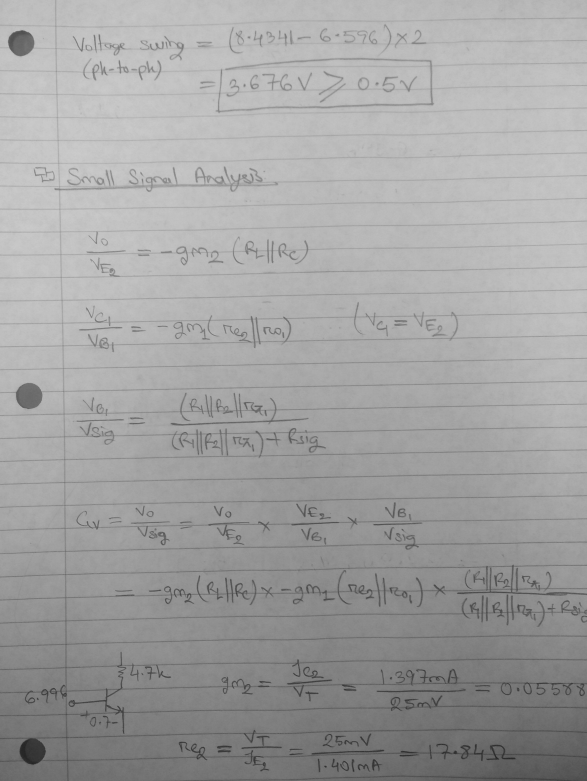 Voltage swing = (8.4341 - 6.596) × 2
(pk-to-pk)
= 3.676V ⩾ 0.5V
Small Signal Analysis:
Vo/VE2 = -gm2 (RL||RC)
VC1/VB1 = -gm1 (re2||ro1) (VC1 = VE2)
VB1/Vsig = (R1||R2||rπ1)/((R1||R2||rπ1) + Rsig)
Gv = Vo/Vsig = Vo/VE2 × VE2/VB1 × VB1/Vsig
= -gm2 (RL||RC) × -gm1 (re2||ro1) × (R1||R2||rπ1)/((R1||R2||rπ1) + Rsig
4.7k
6.996
+0.7-
gm2 = IC2/VT = 1.397mA/25mV = 0.05588
re2 = VT/IE2 = 25mV/1.401mA = 17.84Ω